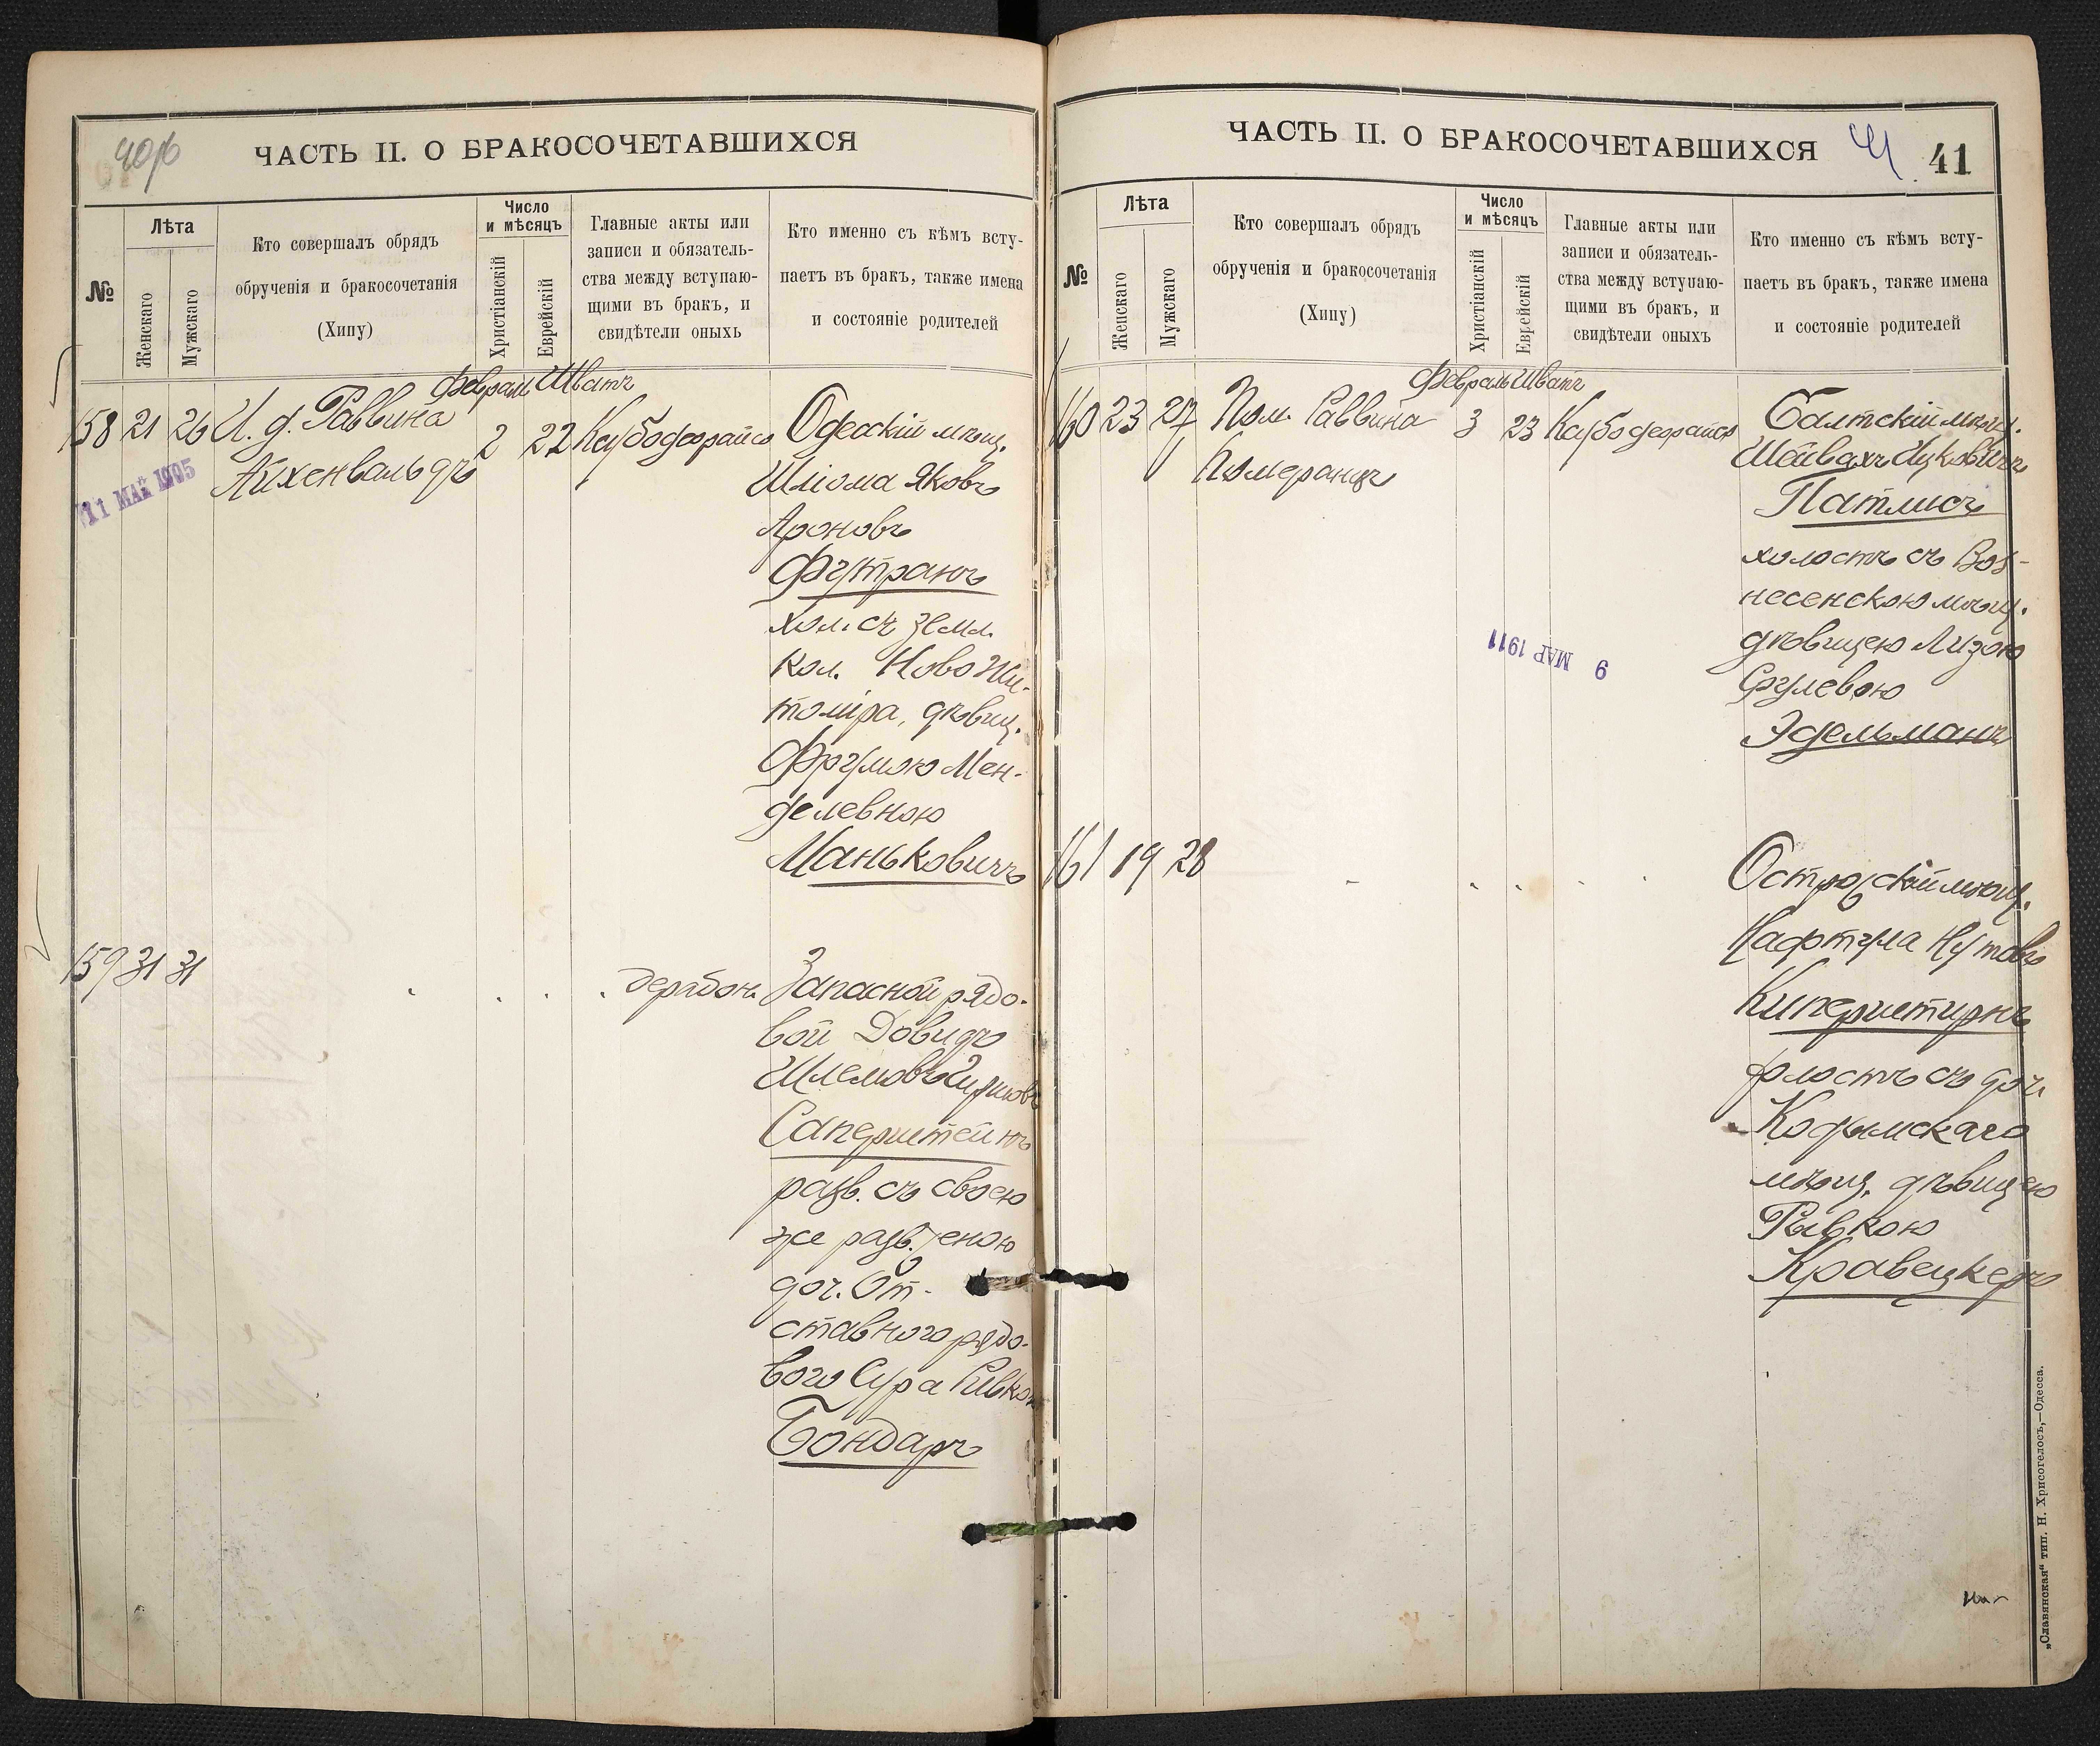 40об
ЧАСТЬ II. О БРАКОСОЧЕТАВШИХСЯ
№
Лѣта
Женскаго
Мужскаго
Кто совершалъ обрядъ
обрученія и бракосочетанія
(Хипу)
Число
и мѣсяцъ
Христіанскій
Еврейскій
Главные акты или
записи и обязатель-
ства между вступаю-
щими въ бракъ, и
свидѣтели оныхъ
Кто именно съ кѣмъ всту-
паетъ въ бракъ, также имена
и состояніе родителей
Февраль Шватъ
158 21 26 И. д. Раввина 2 22 Одесскій мѣщ.
Айхенвальдъ
11 МАЙ 1905
Шліома Яковъ
Ароновъ
Футранъ
хол. съ земл.
кол. Ново Жи-
томіра, дѣвиц.
Фрумою Мен-
делевною
Маньковичъ
159 31 31
Запасной рядо-
вой Довидъ
Шлемовъ
Саперштейнъ
разв. съ своею
же разв. женою
доч. От-
ставного рядо-
вого Сура Ривкою
Бондаръ
ЧАСТЬ II. О БРАКОСОЧЕТАВШИХСЯ
41
41
№
Лѣта
Женскаго
Мужскаго
Кто совершалъ обрядъ
обрученія и бракосочетанія
(Хипу)
Число
и мѣсяцъ
Христіанскій
Еврейскій
Главные акты или
записи и обязатель-
ства между вступаю-
щими въ бракъ, и
свидѣтели оныхъ
Кто именно съ кѣмъ всту-
паетъ въ бракъ, также имена
и состояніе родителей
Февраль Шватъ
160 23 27 Пом. Раввина 3 23 Балтскій мѣщ.
Померанцъ
Шайвахъ Ицковичъ
Патлисъ
холостъ съ Воз-
несенскою мѣщ.
дѣвицею Лизою
Срулевою
Эдельманъ
9 МАР 1911
161 19 28
Острожскій мѣщ.
Нафтула Нутовъ
Киперштирнъ
холостъ съ доч.
Кодымскаго
мѣщ. дѣвицею
Рывкою
Кравецкеръ
„Славянская“ тип. Н. Хрисогелосъ,—Одесса.